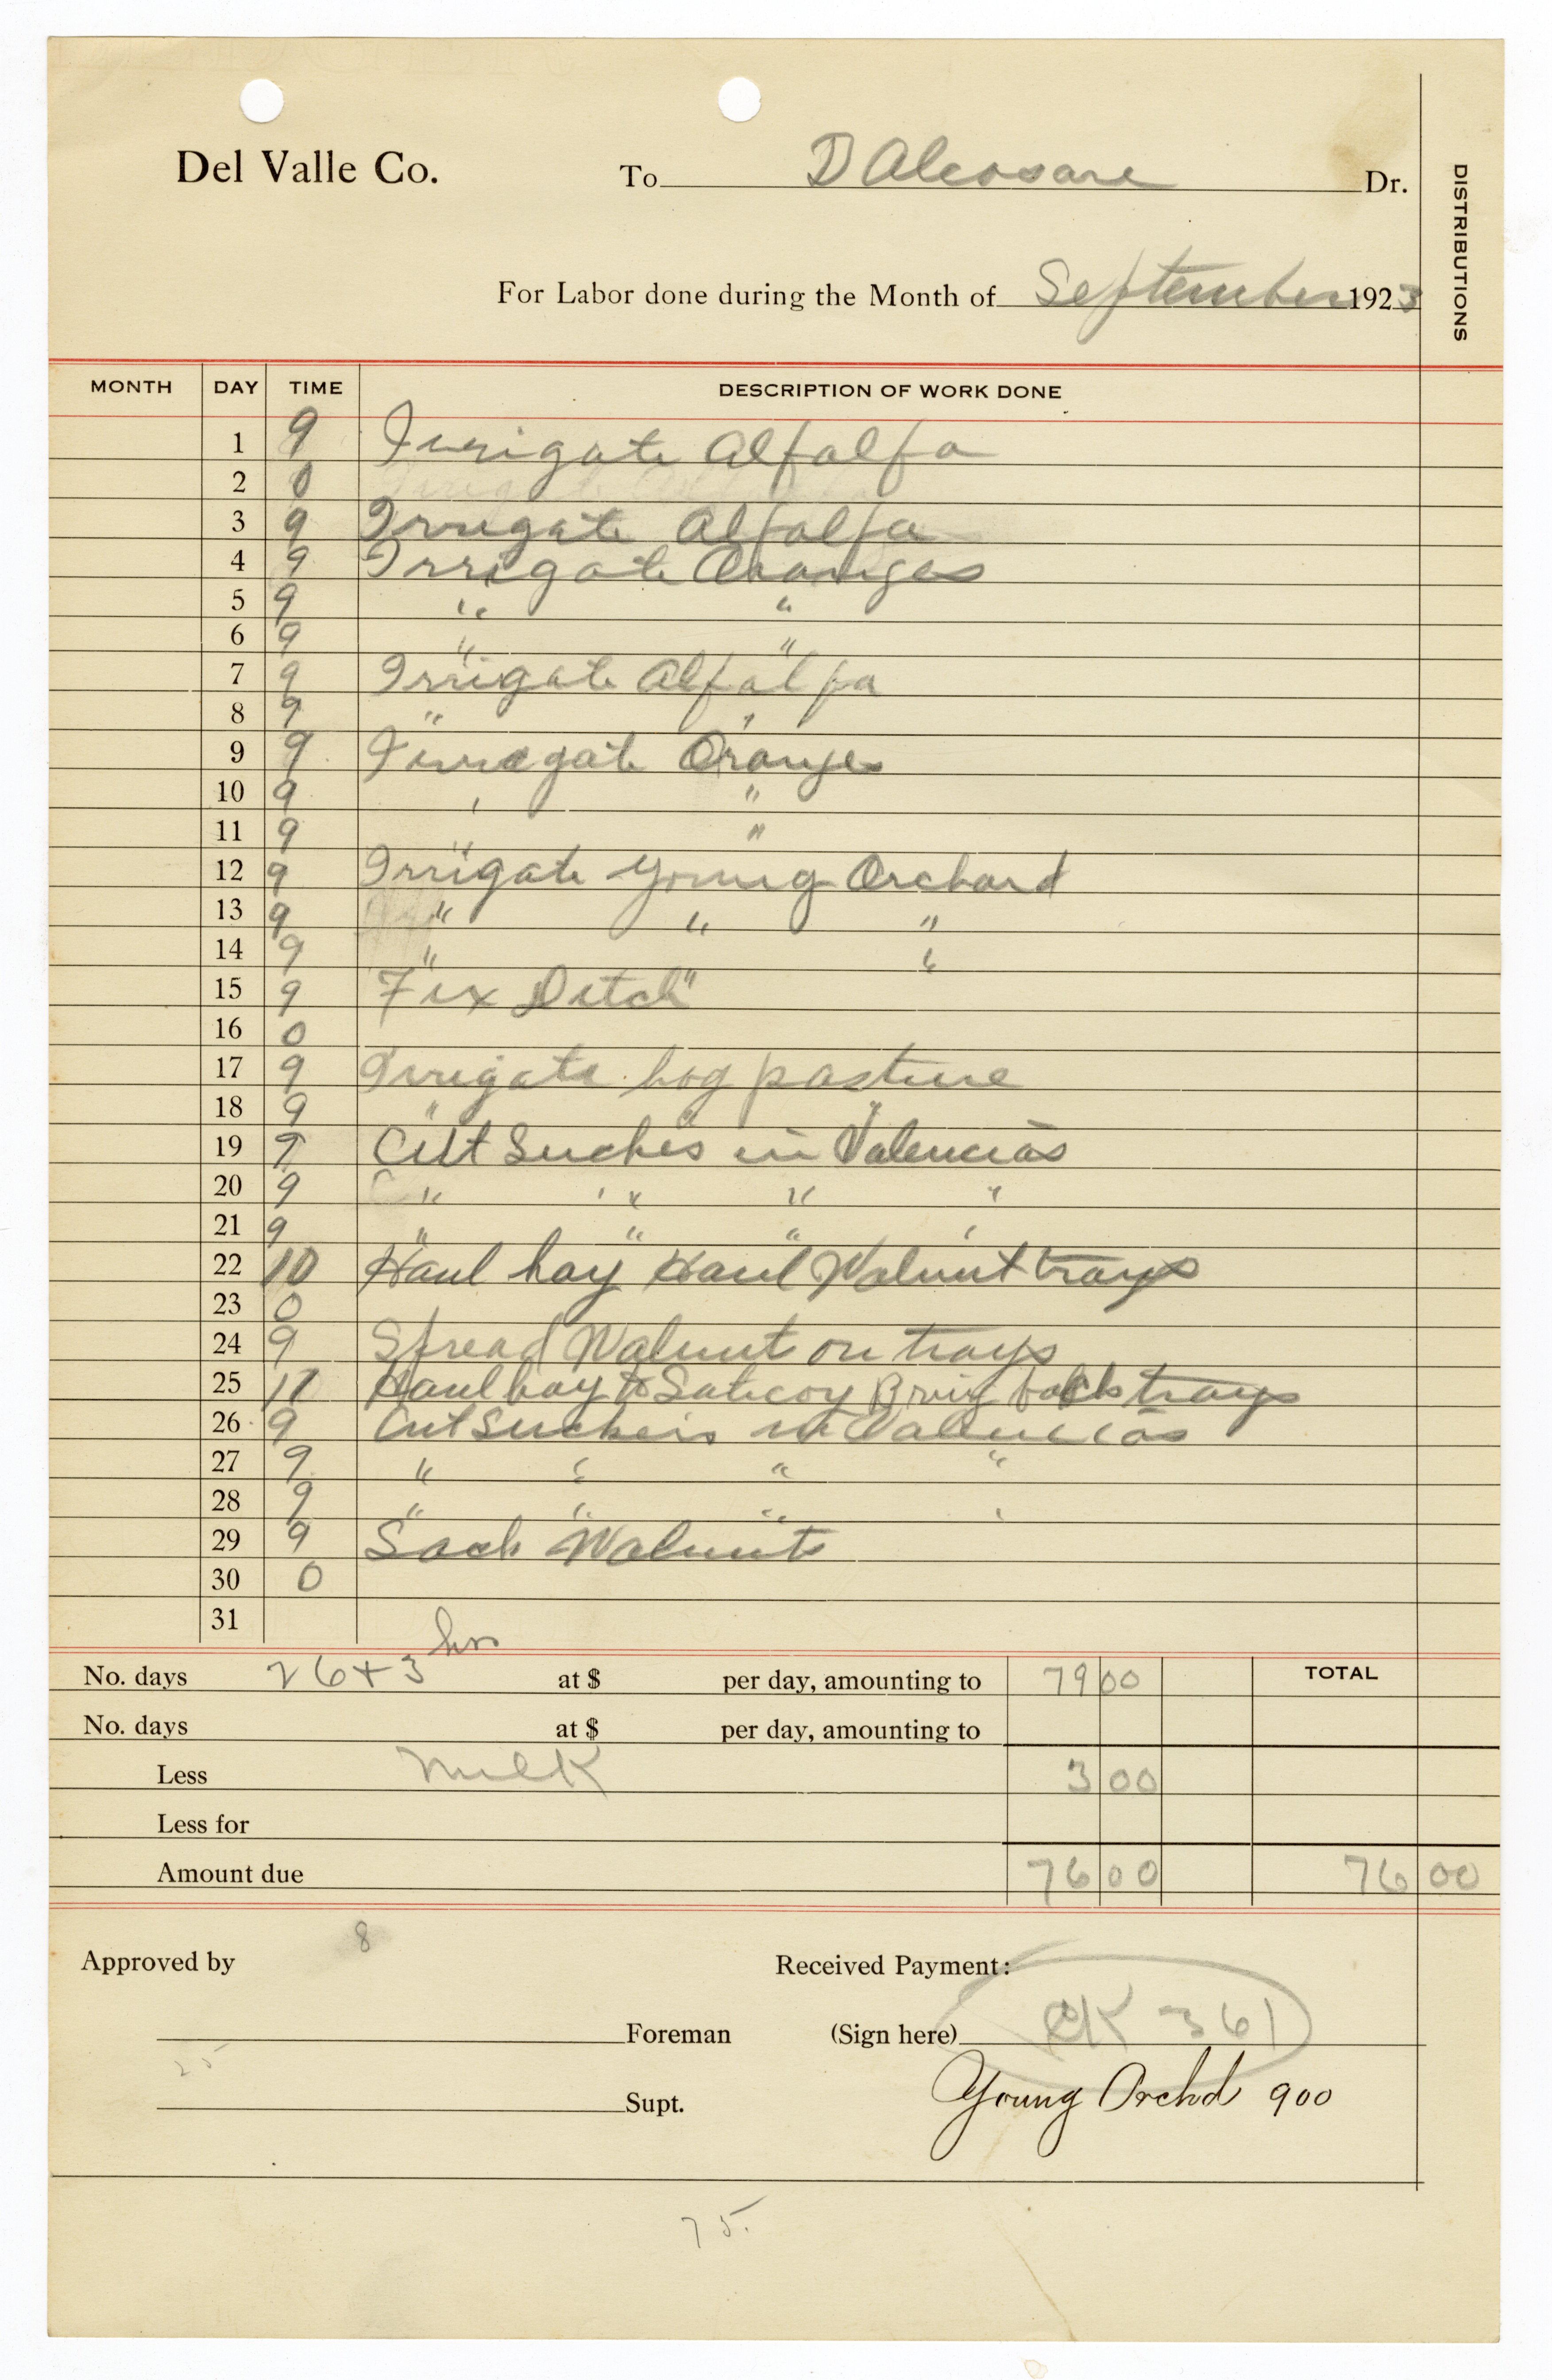 Del Valle Co. To D Alcosare Dr.
DISTRIBUTIONS
For Labor done during the Month of September 1923
MONTH DAY TIME DESCRIPTION OF WORK DONE
1 9 Irrigate Alfalfa
2 0
3 9 Irrigate Alfalfa
4 9 Irrigate Oranges
5 9 " "
6 9 " "
7 9 Irrigate Alfalfa
8 9 " "
9 9 Irrigate Oranges
10 9 " "
11 9 " "
12 9 Irrigate Young Orchard
13 9 " " "
14 9 " " "
15 9 Fix Ditch
16 0
17 9 Irrigate hog pasture
18 9 " " "
19 9 Cut Suckes in Valencias
20 9 " " " "
21 9 " " " "
22 10 Haul hay Haul Walnut trays
23 0
24 9 Spread Walnuts on trays
25 11 Haul hay to Saticoy Bring back trays
26 9 Cut Suckers in Valencias
27 9 " " " "
28 9 " " " "
29 9 Sack Walnuts
30 0
31
No. days 26 + 3 hrs at $ per day, amounting to 79 00 TOTAL
No. days at $ per day, amounting to
Less Milk 3 00
Less for
Amount due 76 00 76 00
8
Approved by Received Payment:
Foreman (Sign here) CK 361
25
Supt. Young Orchd 900
75.